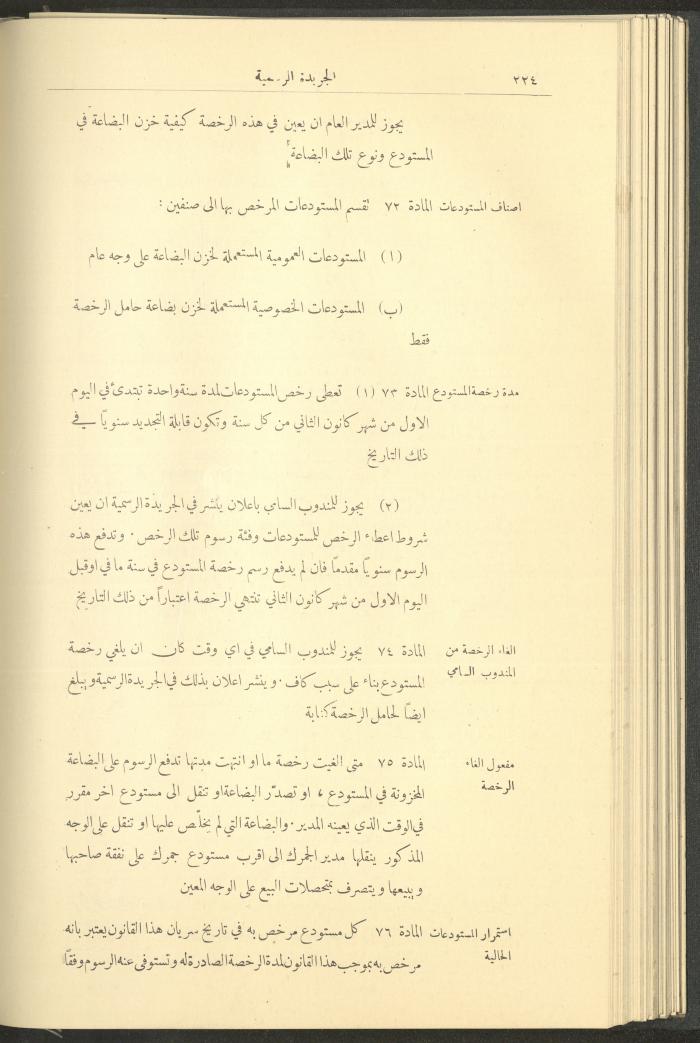 ٢٢٤ الجريدة الرسمية
يجوز للمدير العام ان يعين في هذه الرخصة كيفية خزن البضاعة في
المستودع ونوع تلك البضاعة
اصناف المستودعات المادة ٧٢ تقسم المستودعات المرخص بها الى صنفين :
(١) المستودعات العمومية المستعملة لخزن البضاعة على وجه عام
(ب) المستودعات الخصوصية المستعملة لخزن بضاعة حامل الرخصة
فقط
مدة رخصة المستودع المادة ٧٣ (١) تعطى رخص المستودعات لمدة سنة واحدة تبتدئ في اليوم
الاول من شهر كانون الثاني من كل سنة وتكون قابلة التجديد سنويًا في
ذلك التاريخ
(٢) يجوز للمندوب السامي باعلان ينشر في الجريدة الرسمية ان يعين
شروط اعطاء الرخص للمستودعات وفئة رسوم تلك الرخص . وتدفع هذه
الرسوم سنويًا مقدمًا فان لم يدفع رسم رخصة المستودع في سنة ما في اوقبل
اليوم الاول من شهر كانون الثاني تنتهي الرخصة اعتبارًا من ذلك التاريخ
الغاء الرخصة من المادة ٧٤ يجوز للمندوب السامي في اي وقت كان ان يلغي رخصة
المندوب السامي المستودع بناء على سبب كاف . وينشر اعلان بذلك في الجريدة الرسمية ويبلغ
ايضًا لحامل الرخصة كتابة
مفعول الغاء المادة ٧٥ متى الغيت رخصة ما او انتهت مدتها تدفع الرسوم على البضاعة
الرخصة المخزونة في المستودع ، او تصدّر البضاعة او تنقل الى مستودع اخر مقرر
في الوقت الذي يعينه المدير . والبضاعة التي لم يخلّص عليها او تنقل على الوجه
المذكور ينقلها مدير الجمرك الى اقرب مستودع جمرك على نفقة صاحبها
ويبيعها ويتصرف بمتحصلات البيع على الوجه المعين
استمرار المستودعات المادة ٧٦ كل مستودع مرخص به في تاريخ سريان هذا القانون يعتبر بانه
الحالية مرخص به بموجب هذا القانون لمدة الرخصة الصادرة له وتستوفى عنه الرسوم وفقًا